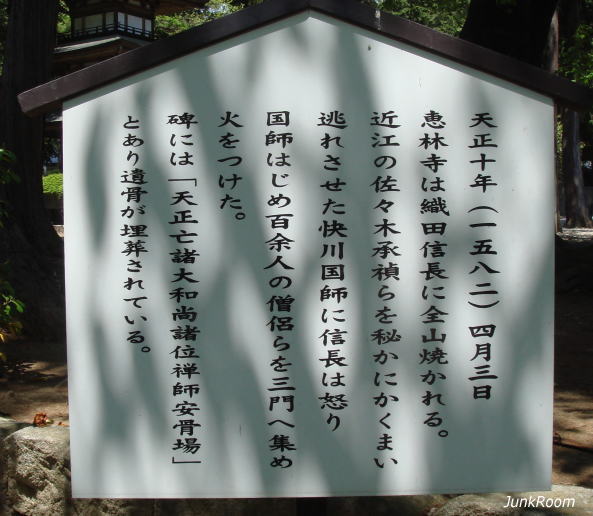 天正十年（一五八二）四月三日
恵林寺は織田信長に全山焼かれる。
近江の佐々木承禎らを秘かにかくまい
逃れさせた快川国師に信長は怒り
国師はじめ百余人の僧侶らを三門へ集め
火をつけた。
碑には「天正亡諸大和尚諸位禅師安骨場」
とあり遺骨が埋葬されている。
JunkRoom